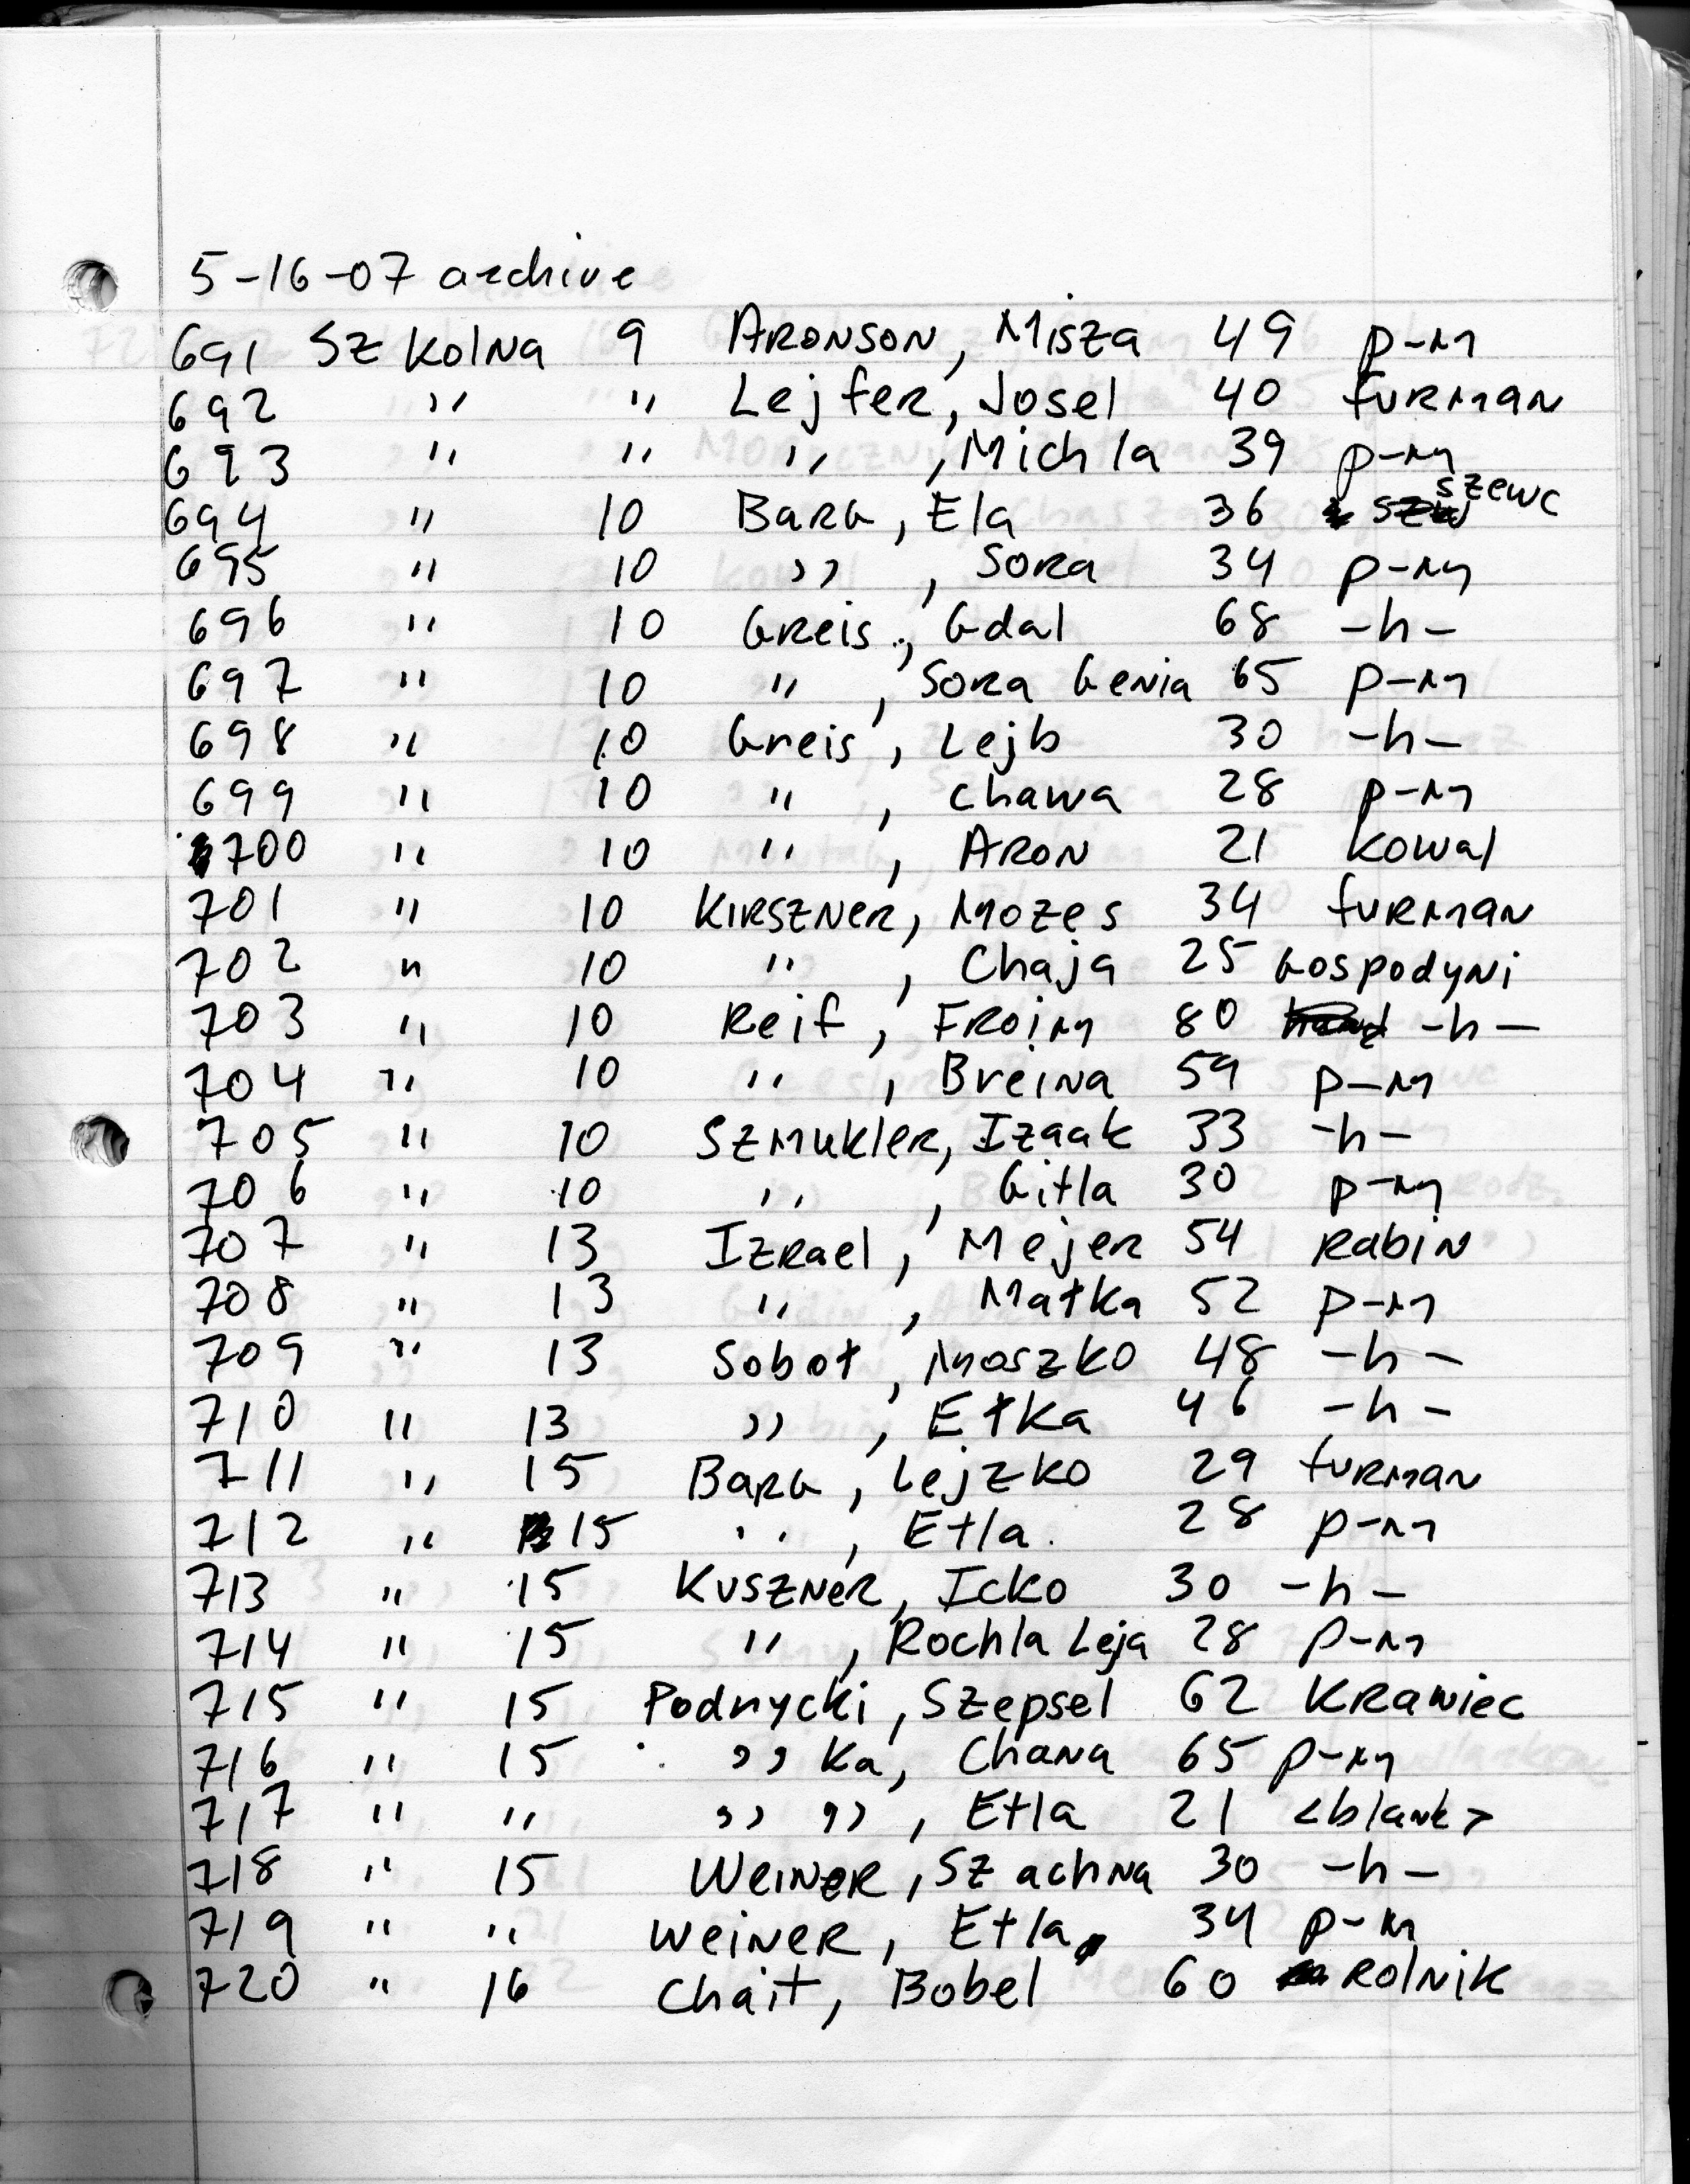 5-16-07 archive
691 Szkolna 9 Aronson, Misza 49 p-m
692 " " Lejfer, Josel 40 furman
693 " " " , Michla 39 p-m
694 " 10 Barg, Ela 36 szewc
695 " 10 " , Sora 34 p-m
696 " 10 Greis, Gdal 68 -h-
697 " 10 " , Sora Genia 65 p-m
698 " 10 Greis, Lejb 30 -h-
699 " 10 " , Chawa 28 p-m
700 " 10 " , Aron 21 kowal
701 " 10 Kirszner, Mozes 34 furman
702 " 10 " , Chaja 25 Gospodyni
703 " 10 Reif, Froim 80 -h-
704 " 10 " , Breina 59 p-m
705 " 10 Szmukler, Izaak 33 -h-
706 " 10 " , Gitla 30 p-m
707 " 13 Izrael, Mejer 54 Rabin
708 " 13 " , Matka 52 p-m
709 " 13 Sobot, Moszko 48 -h-
710 " 13 " , Etka 46 -h-
711 " 15 Barg, Lejzko 29 furman
712 " 15 " , Etla 28 p-m
713 " 15 Kuszner, Icko 30 -h-
714 " 15 " , Rochla Leja 28 p-m
715 " 15 Podnycki, Szepsel 62 Krawiec
716 " 15 " ka, Chana 65 p-m
717 " " " " , Etla 21 <blank>
718 " 15 Weiner, Szachna 30 -h-
719 " " Weiner, Etla 34 p-m
720 " 16 Chait, Bobel 60 Rolnik